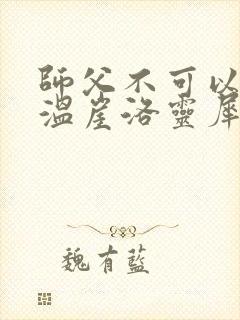 師父不可以
溫崖洛靈犀
魏有藍